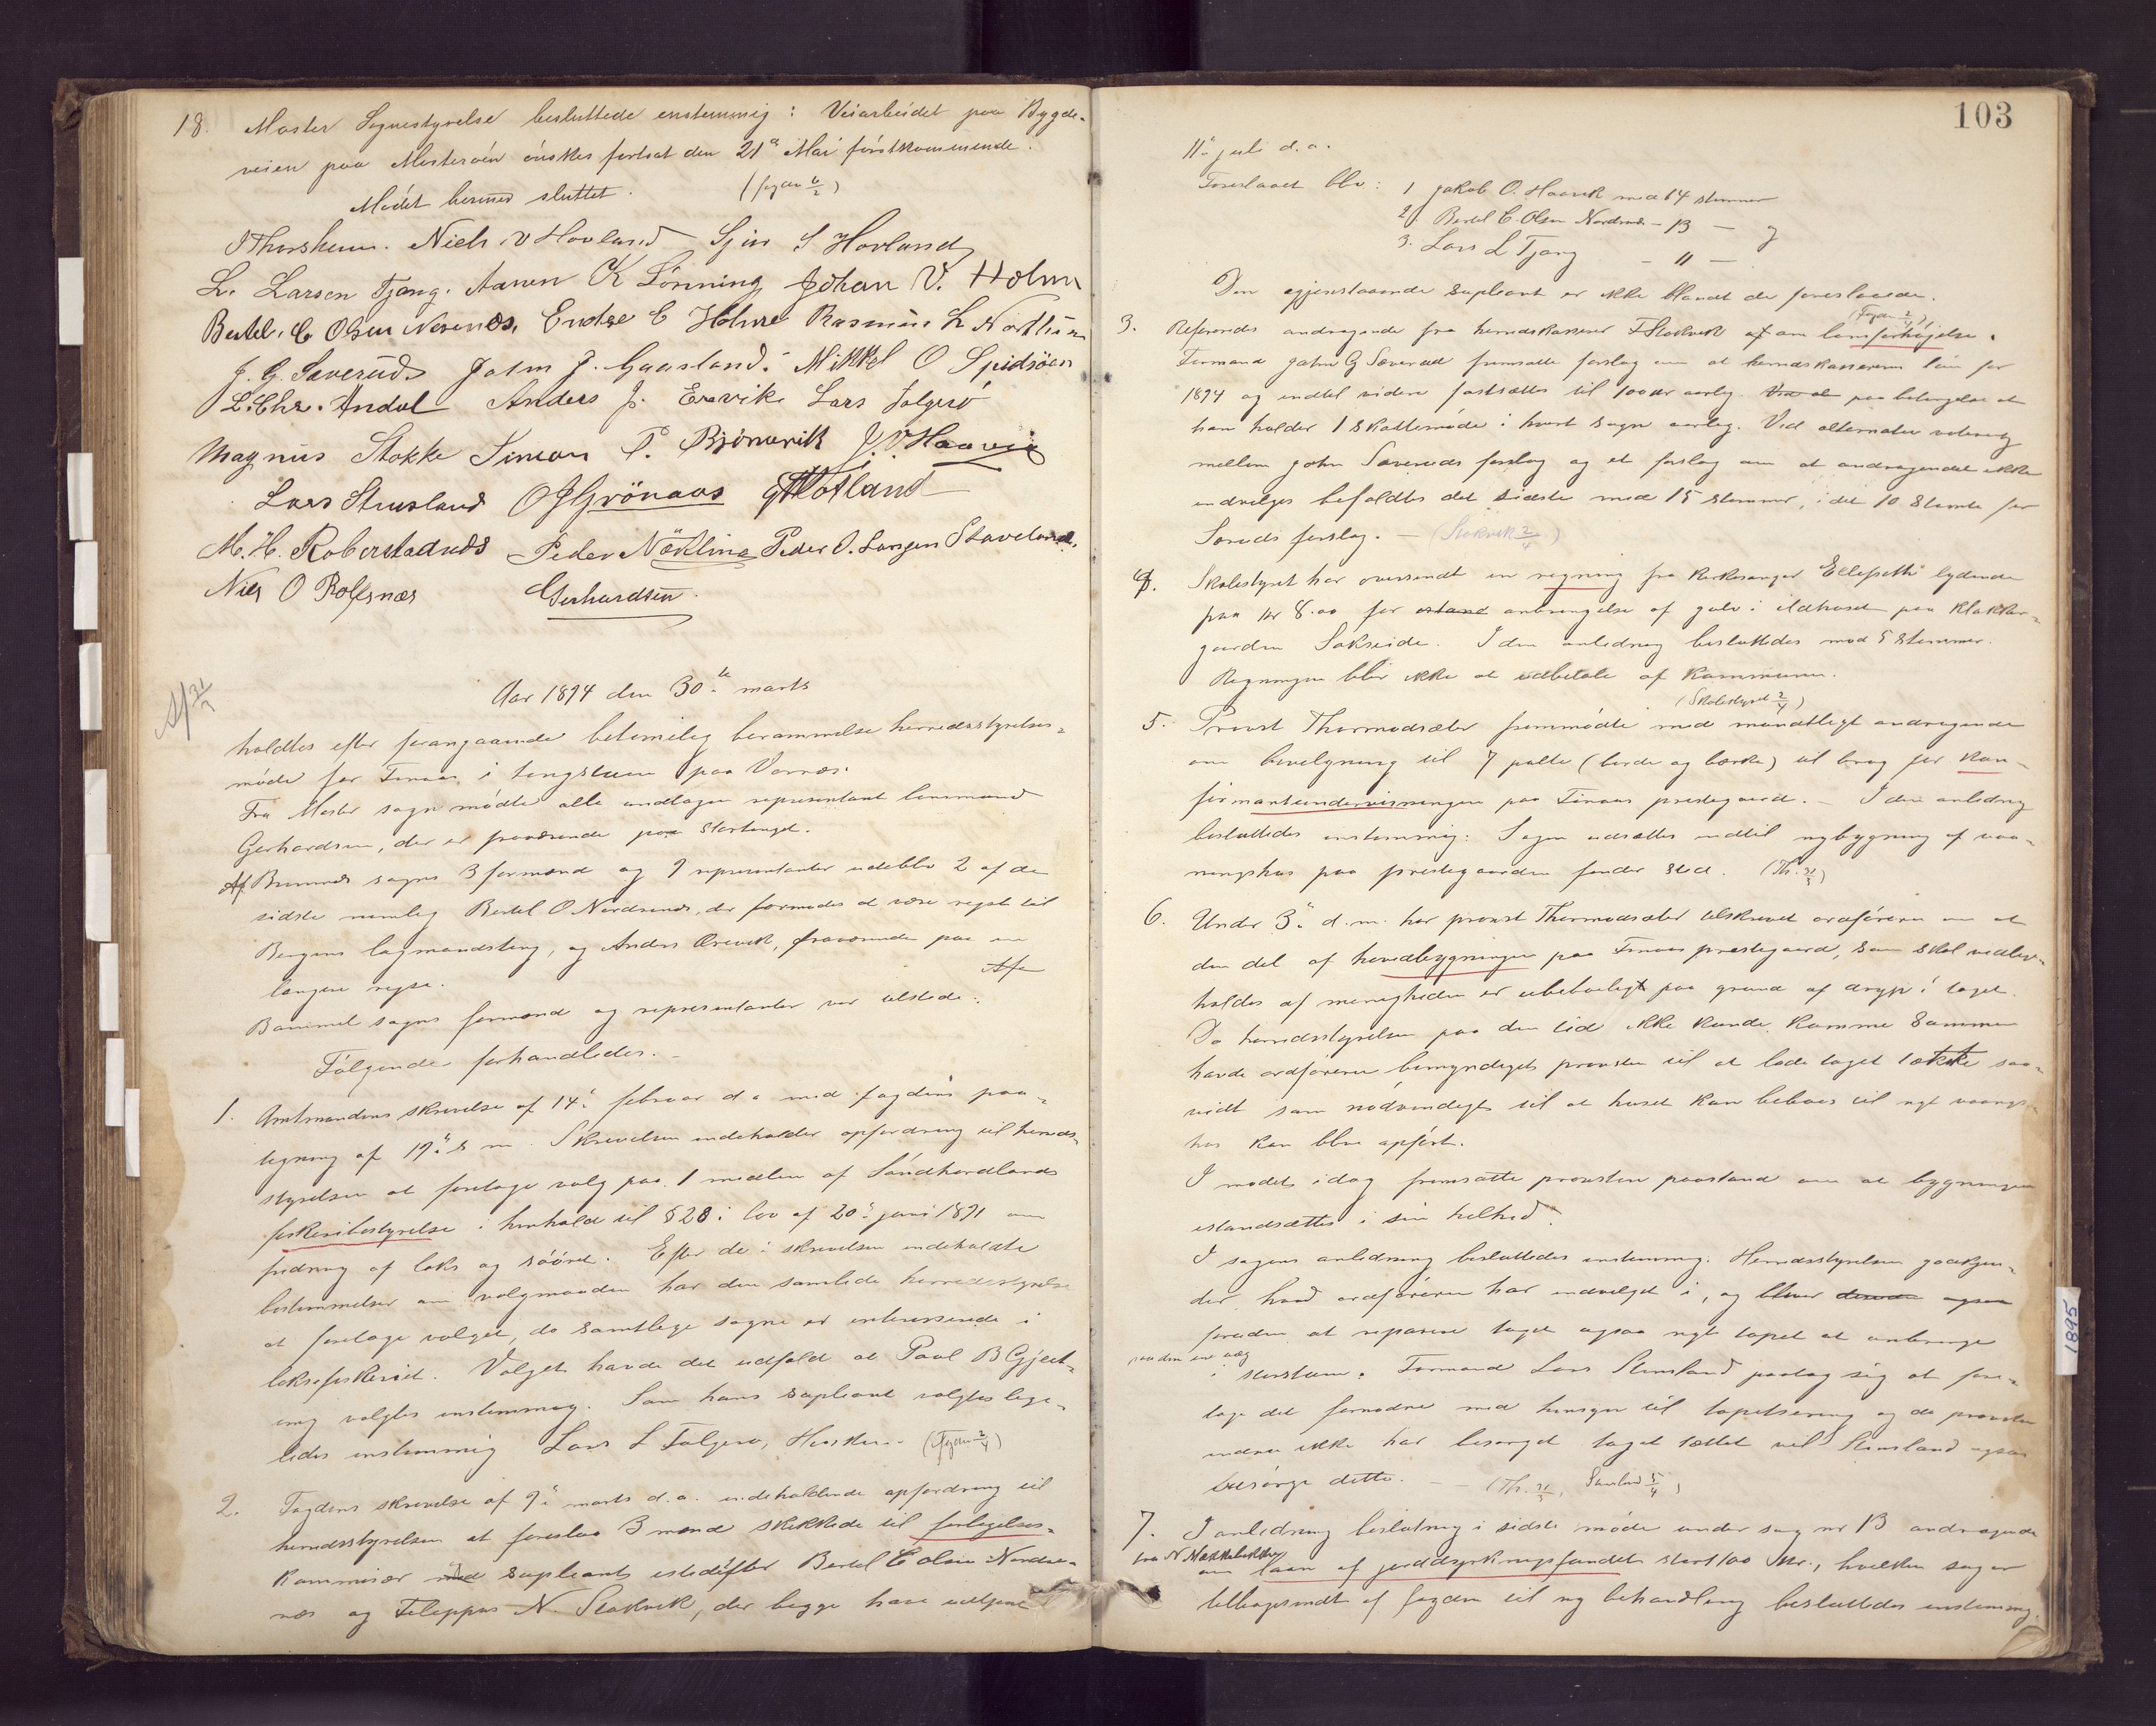 18. Moster Sognestyrelse besluttede enstemmig: Veiarbeidet paa Bygde-
veien paa Mosterøen ønskes fortsat den 21de Mai førstkommende.
Mødet hermed sluttet. (fogden 6/2)
Thorsheim. Niels V Hovland Sjur S Hovland
L. Larsen Tjong. Aamen K Lønning Johan V. Holm
Bertel C Olsen Nesenes, Endre E Holme Rasmus L Nortun
J. G. Sæverud. John J. Gaasland. Mikkel O Spidsøen
L. Chr. Andal Anders J. Erevik Lars Folgerø
Magnus Stokke Simon P. Bjønevik J. O. Haavig
Lars Stensland O J Grönaas G Hotland
M. H. Roberstadnes Peder Nökling Peder O. Larsen Staveland.
Nils O Rolfsnæs Gerhardsen.
Af 31/3
Aar 1894 den 30te marts
holdtes efter forangaaende betimelig berammelse herredsstyrelses-
møde for Finaas i tingstuen paa Vornæs.
Fra Moster sogn mødte alle undtagen representant lensmand
Gerhardsen, der er fraværende paa Stortinget.
Af Bremnes sogns 3 formænd og 9 representanter udeblev 2 af de
sidste nemlig Bertel O Nordsenes, der formodes at være reist til
Bergens lagmandsting, og Anders Ærevik, fraværende paa en
længere reise.
Bømmel sogns formænd og representanter var tilstede.
Følgende forhandledes.
1. Amtmandens skrivelse af 14de februar d. a. med fogdens paa-
tegning af 19de s. m. Skrivelsen indeholder opfordring til herreds-
styrelsen at foretage valg paa 1 medlem af Søndhordlands
fiskeribestyrelse i henhold til § 28 i lov af 20de juni 1891 om
fredning af laks og søørret. Efter de i skrivelsen indeholdte
bestemmelser om valgmaaden har den samlede herredsstyrelse
at foretage valget, da samtlige sogne er interesserede i
laksefiskeriet. Valget havde det udfald at Paul B Gjert-
ing valgtes enstemmig. Som hans supleant valgtes lige-
ledes enstemmig Lars L Folgerø, Hiskен. (Fogden 2/4)
2. Fogdens skrivelse af 9de marts d. a. indeholdende opfordring til
herredsstyrelsen at foreslaa 3 mænd skikkede til forligelses-
kommisær med supleant istedetfor Bertel C Olsen Nordse-
næs og Filippus N. Stokvik, der begge have udtjent
103
11te juli d. a.
Foreslaaet blev: 1 Jakob O. Haavik med 14 stemmer
2. Bertel C. Olsen Nordsenæs - 13 - og
3. Lars L Tjong - 11 -
Den gjenstaaende supleant er ikke blandt de foreslaaede.
(Fogden 2/4)
3. Refereredes andragende fra herredskasserer F Stokvik af om lønsforhøielse.
Formand John G Sæverud fremsatte forslag om at herredskassererens løn for
1894 og indtil videre fastsættes til 100 kr aarlig. paa betingelse at
han holder 1 skattemøde i hvert sogn aarlig. Ved alternativ votering
mellem John Sæveruds forslag og et forslag om at andragendet ikke
indvilges befaldtes det sidste med 15 stemmer, i det 10 stemte for
Sæveruds forslag. - (Stokvik 2/4)
4. Skolestyret har oversendt en regning fra kirkesanger Ellefsen lydende
paa kr 8.00 for anbringelse af gulv i ildhuset paa Klokker-
gaarden Sakseide. I den anledning besluttedes mod 5 stemmer.
Regningen blir ikke at udbetale af kommunen.
(Skolestyret 2/4)
5. Provst Thormodsæter fremmødte med mundtligt andragende
om bevilgning til 7 pulte (borde og bænke) til brug for kon-
firmantundervisningen paa Finaas prestegaard. - I den anledning
besluttedes enstemmig: Sagen udsættes indtil nybygning af vaa-
ningshus paa prestegaarden finder sted. (Th. 31/3)
6. Under 3de d. m. har provst Thormodsæter tilskrevet ordføreren om at
den del af hovedbygningen paa Finaas prestegaard, som skal vedlige-
holdes af menigheden er ubeboeligt paa grund af dryp i taget.
Da herredsstyrelsen paa den tid ikke kunde komme sammen
havde ordføreren bemyndiget provsten til at lade taget tække saa-
vidt som nødvendigt til at huset kan beboes til nyt vaanings-
hus kan blive opført.
I mødet idag fremsatte provsten paastand om at bygningen
istandsættes i sin helhed.
I sagens anledning besluttedes enstemmig: Herredsstyrelsen godkjen-
der, hvad ordføreren har indvilget i, og bliver desuden ogsaa
foruden at reparere taget ogsaa nyt tapet at anbringe
paa den ene væg
i storstuen. Formand Lars Stensland paatog sig at fore-
tage det fornødne med hensyn til tapetsering og da provsten
endnu ikke har besørget taget tættet vil Stensland ogsaa
besørge dette. - (Th. 31/3, Stensland 5/4)
7. I anledning beslutning i sidste møde under sag nr 13 andragende
fra N Nækkelikke
om laan af jorddyrkningsfondet stort 100 kr., hvilken sag er
tilbagesendt af fogden til ny behandling besluttedes enstemmig.
1895